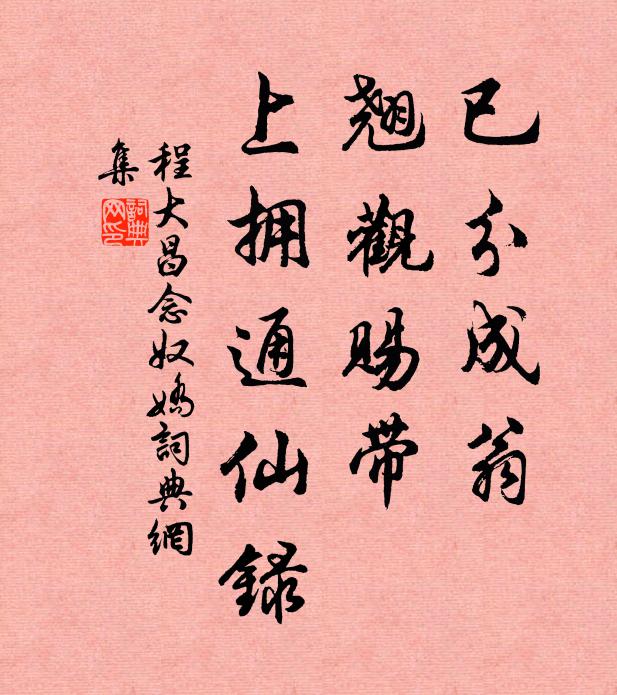 已分成翁
翹觀賜带
上拥通仙録
程大昌念奴嬌詞典網
集
詞典
网印